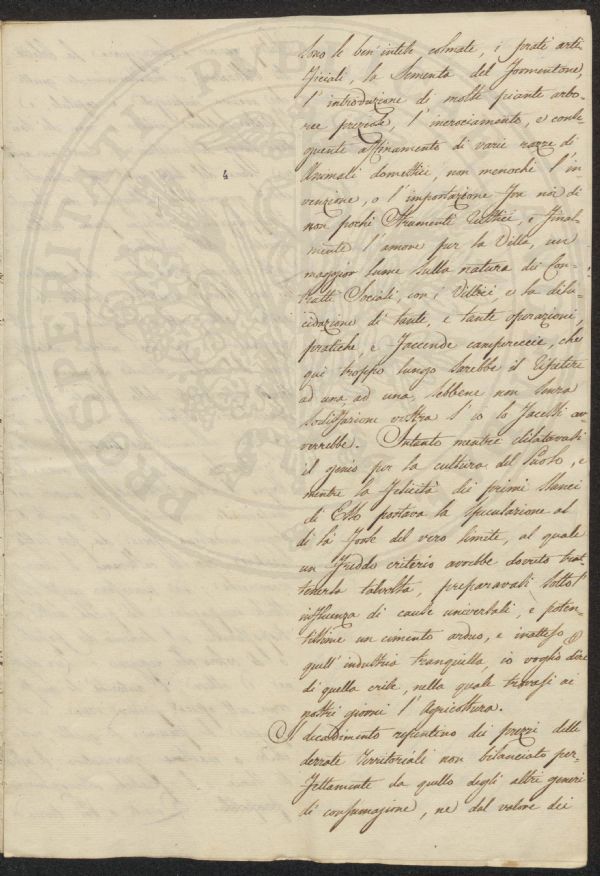 4
sono le ben' intese colmate, i prati arti-
ficiali, la Sementa del formentone,
l' introduzione di molte piante arbo-
ree pregiate, l' incrociamento e conse
guente affinamento di varie razze di
Animali domestici, non menochè l' in-
venzione, o l' importazione fra noi di
non pochi Strumenti Rustici, e final-
mente l' amore per la Villa, un
maggior lume sulla natura dei Con-
tratti Sociali, con i Villici, e la dilu-
cidazione di tante, e tante operazioni
pratiche, e faccende campereccie, che
quì troppo lungo sarebbe il ripetere
ad una ad una, sebbene non senza
sodisfazione vostra s' io lo facessi av-
verrebbe. Intanto mentre dilatavasi
il genio per la cultura del Suolo, e
mentre la felicità dei primi slanci
di Esso portava la speculazione al
di là forse del vero limite, al quale
un freddo criterio avrebbe dovuto trat-
tenerla talvolta, preparavasi sotto l'
influenza di cause universali, e poten-
tissime un cimento arduo, e inatteso a
quell' industria tranquilla, io voglio dire
di quella crise, nella quale trovasi ai
nostri giorni l' Agricoltura.
Il decadimento repentino dei prezzi delle
derrate territoriali non bilanciato per-
fettamente da quello degli altri generi
di consumazione, ne dal valore dei